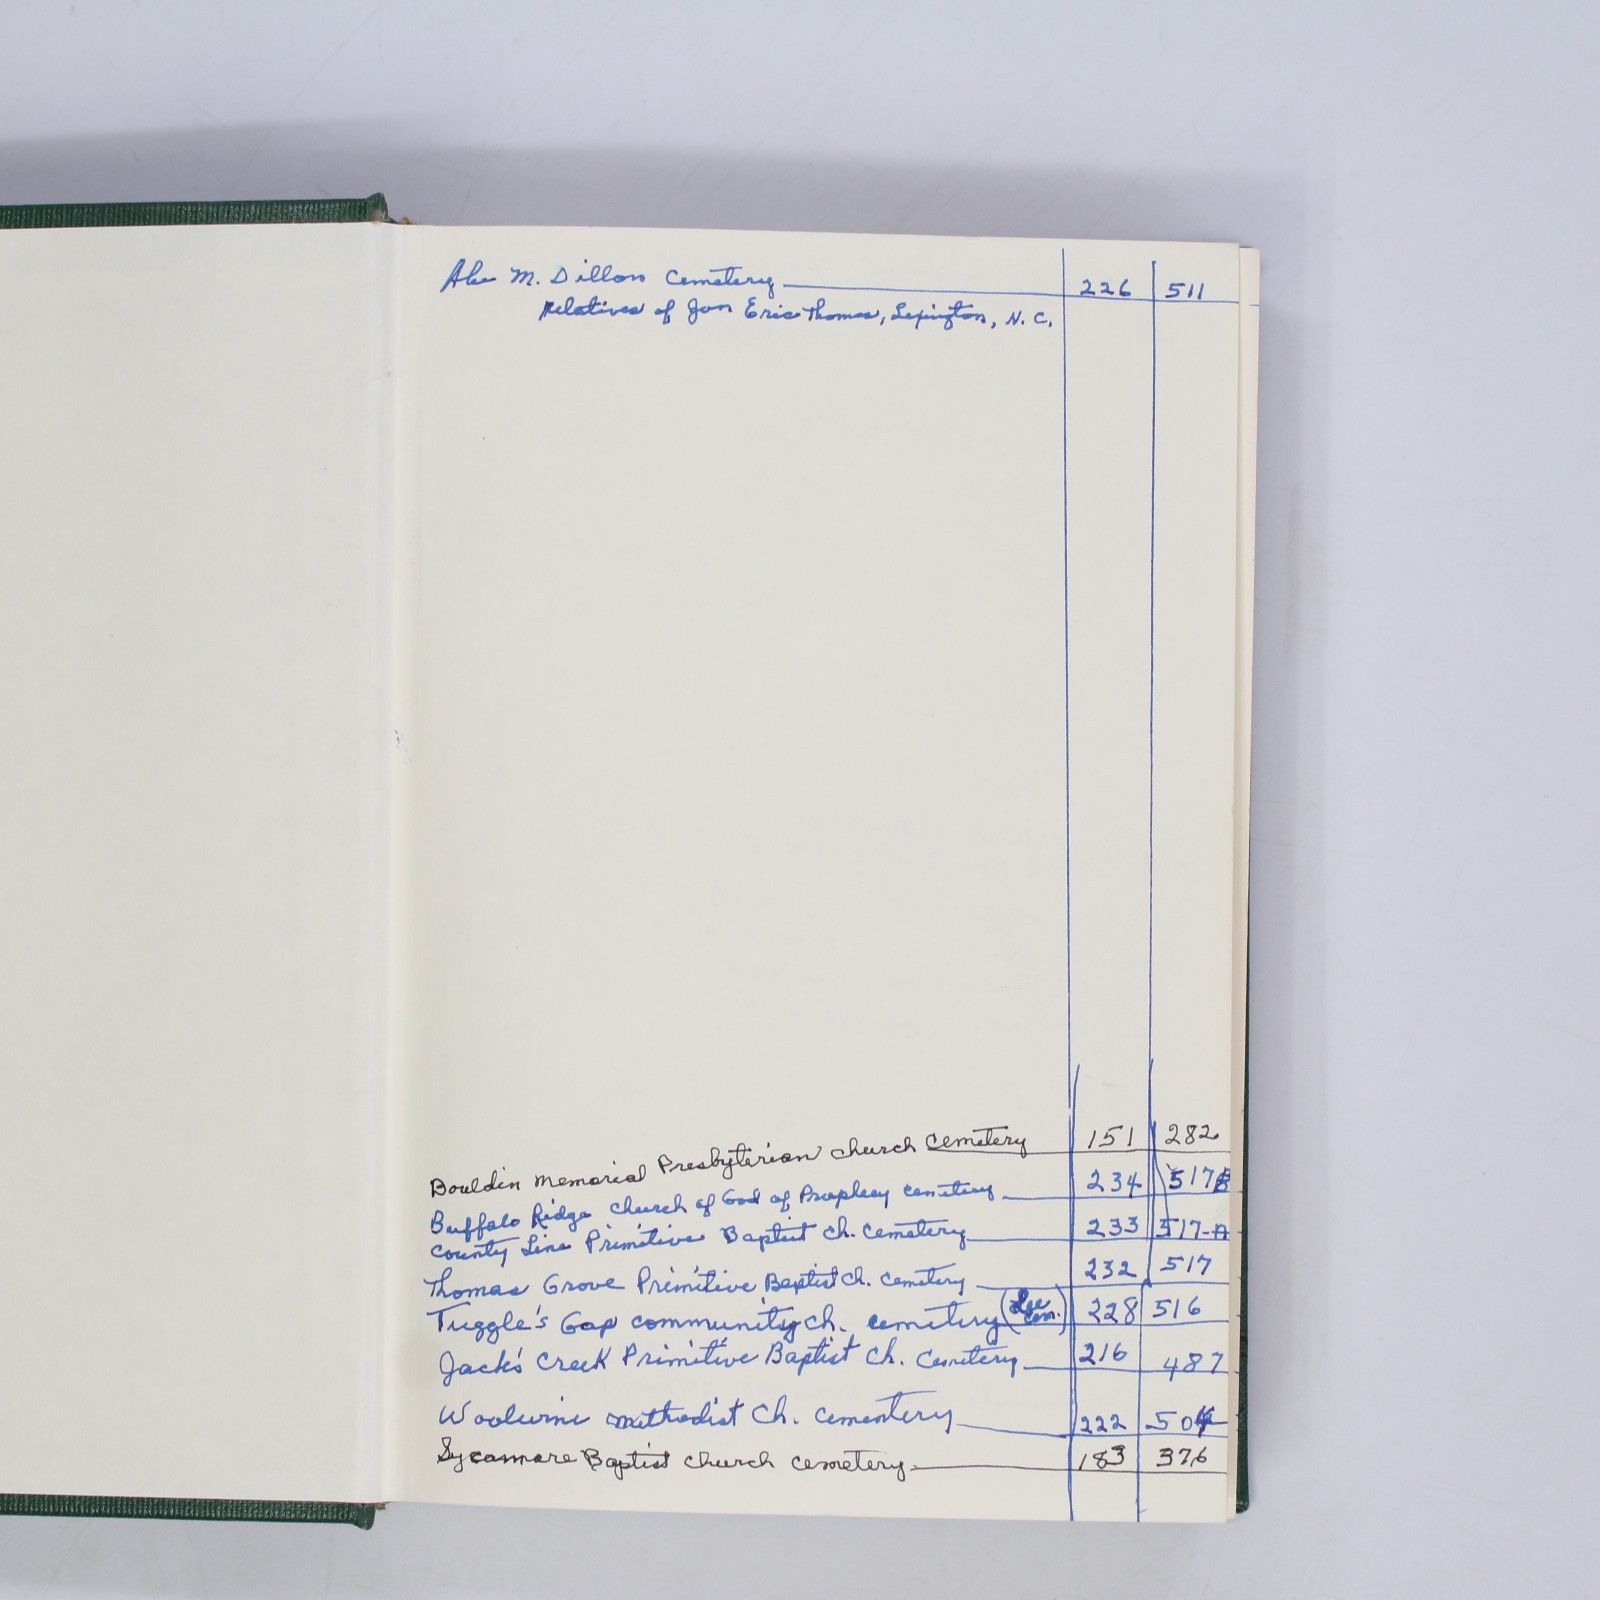 Abe M. Dillon Cemetery 226 511
Relatives of Jon Eric Thomas, Lexington, N. C.
Bouldin Memorial Presbyterian church cemetery 151 282
Buffalo Ridge church of God of Prophecy cemetery 234 517B
County Line Primitive Baptist Ch. cemetery 233 517-A
Thomas Grove Primitive Baptist Ch. cemetery 232 517
Tuggle's Gap community ch. cemetery (Lee cem.) 228 516
Jack's Creek Primitive Baptist Ch. cemetery 216 487
Woolwine Methodist Ch. cementery 222 504
Sycamore Baptist church cemetery 183 376